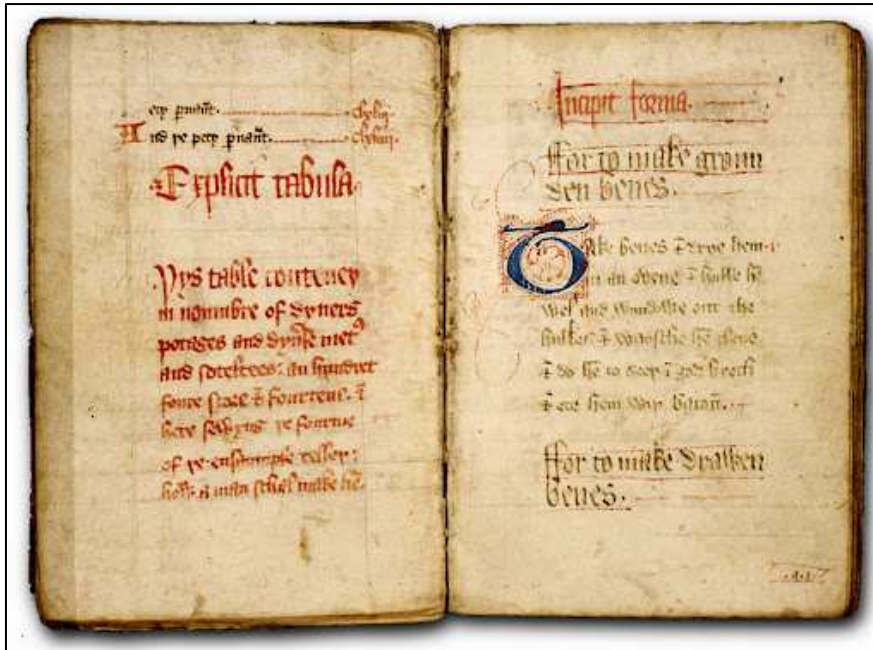 ety
And ye pety
Explicit tabula
Þys table conteney
in noumbre of dyuers
potages and
and soteltees: an hundret
foure & fourtene. &
here ye fourme
of ye ensaumple
how a man schel make hē.
Incipit forma.
ffor to make groun
den benes.
Take benes & drye hem
in an ovene & hulle hē
wel and wyndwe out the
hulkes & waische hē clene
& do hē to seep ī god broth
& ete hem wiþ bacon̄.
ffor to make drawen
benes.